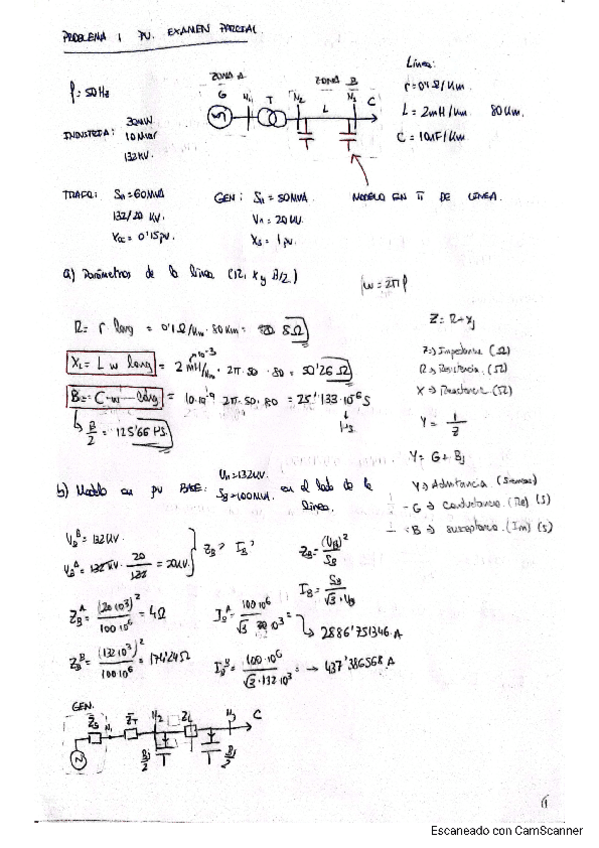 PROBLEMA 1 PU. EXAMEN PARCIAL.
f = 50Hz
INDUSTRIA: 30MW
10 Mvar
132 kV.
ZONA A ZONA B
G N1 T N2 L N3 C
Línea:
r = 0'1 Ω/km
L = 2mH/km 80km.
C = 10nF/km
MODELO EN π DE LINEA.
TRAFO: Sn = 60MVA
132/20 kV.
Xcc = 0'15 pu.
GEN: Sn = 50MVA.
Vn = 20kV.
Xs = 1 pu.
a) Parámetros de la línea (R, X y B/2)
w = 2πf
R = r · long = 0'1 Ω/km · 80km = 8Ω
XL = L w long = 2 · 10^-3 mH/km · 2π · 50 · 80 = 50'26 Ω
B = C · w · long = 10·10^-9 · 2π · 50 · 80 = 251'33·10^-6 S
μs
B/2 = 125'66 μS.
Z = R + Xj
Z → Impedancia (Ω)
R → Resistencia. (Ω)
X → Reactancia. (Ω)
Y = 1/Z
Y = G + Bj
Y → Admitancia. (Siemens)
G → Conductancia. (Re) (S)
B → Susceptancia. (Im) (S)
b) Modelo en pu BASE: Un = 132kV. SB = 100MVA. en el lado de la
línea.
VB^B = 132kV.
VB^A = 132kV · 20/132 = 20kV.
ZB? IB?
ZB = (UB)^2/SB
IB = SB/√3 · UB
ZB^A = (20·10^3)^2/100·10^6 = 4Ω
IB^A = 100·10^6/√3 20·10^3 = → 2886'751346 A
ZB^B = (132·10^3)^2/100·10^6 = 174'24Ω
IB^B = 100·10^6/√3 · 132·10^3 = → 437'386568 A
GEN.
Zs N1 ZT N2 ZL N3 C
Bj/2 Bj/2
Escaneado con CamScanner